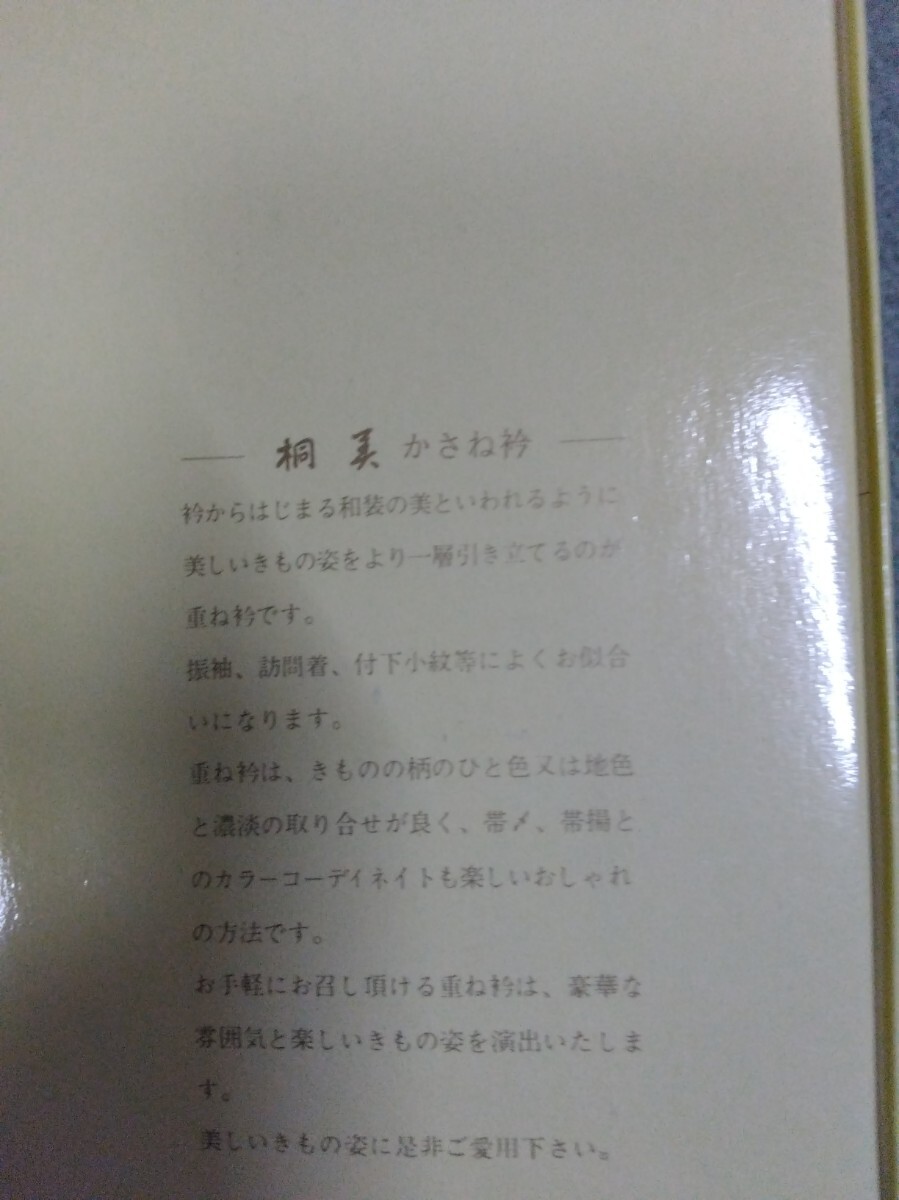 桐美かさね衿
衿からはじまる和装の美といわれるように
美しいきもの姿をより一層引き立てるのが
重ね衿です。
振袖、訪問着、付下小紋等によくお似合
いになります。
重ね衿は、きものの柄のひと色又は地色
と濃淡の取り合せが良く、帯〆、帯揚と
のカラーコーデイネイトも楽しいおしゃれ
の方法です。
お手軽にお召し頂ける重ね衿は、豪華な
雰囲気と楽しいきもの姿を演出いたしま
す。
美しいきもの姿に是非ご愛用下さい。